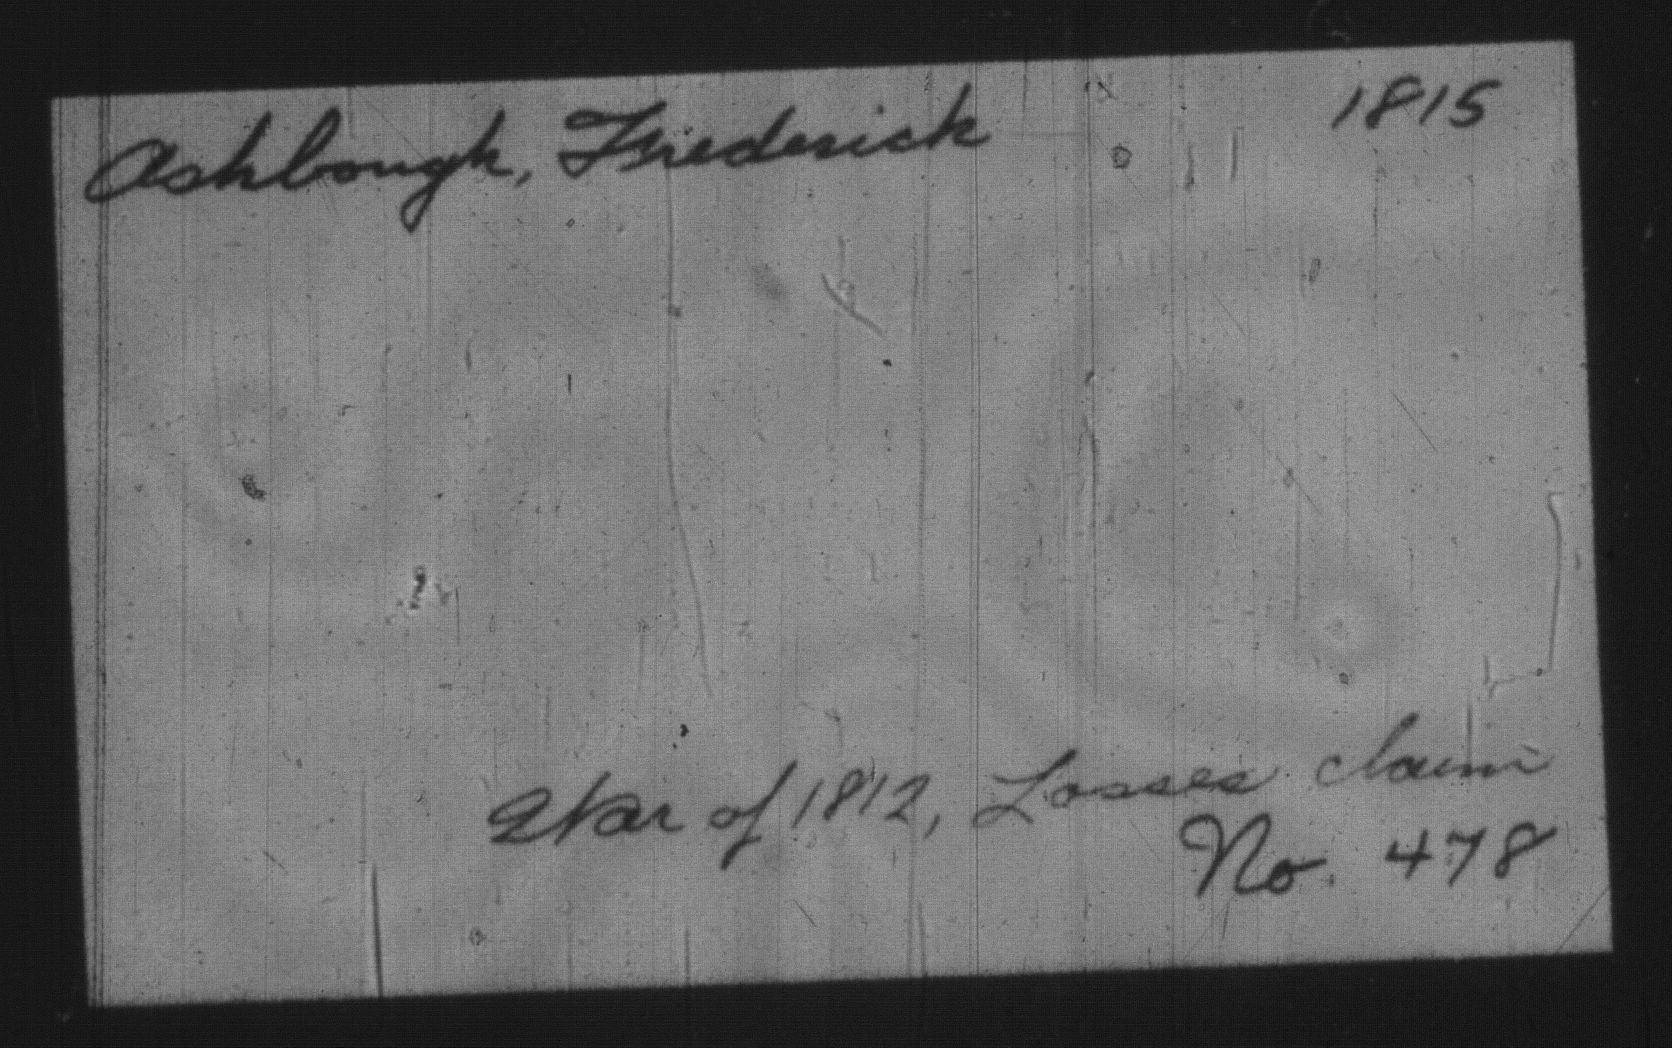 Ashbough, Frederick 1815
War of 1812, Losses claim
No. 478